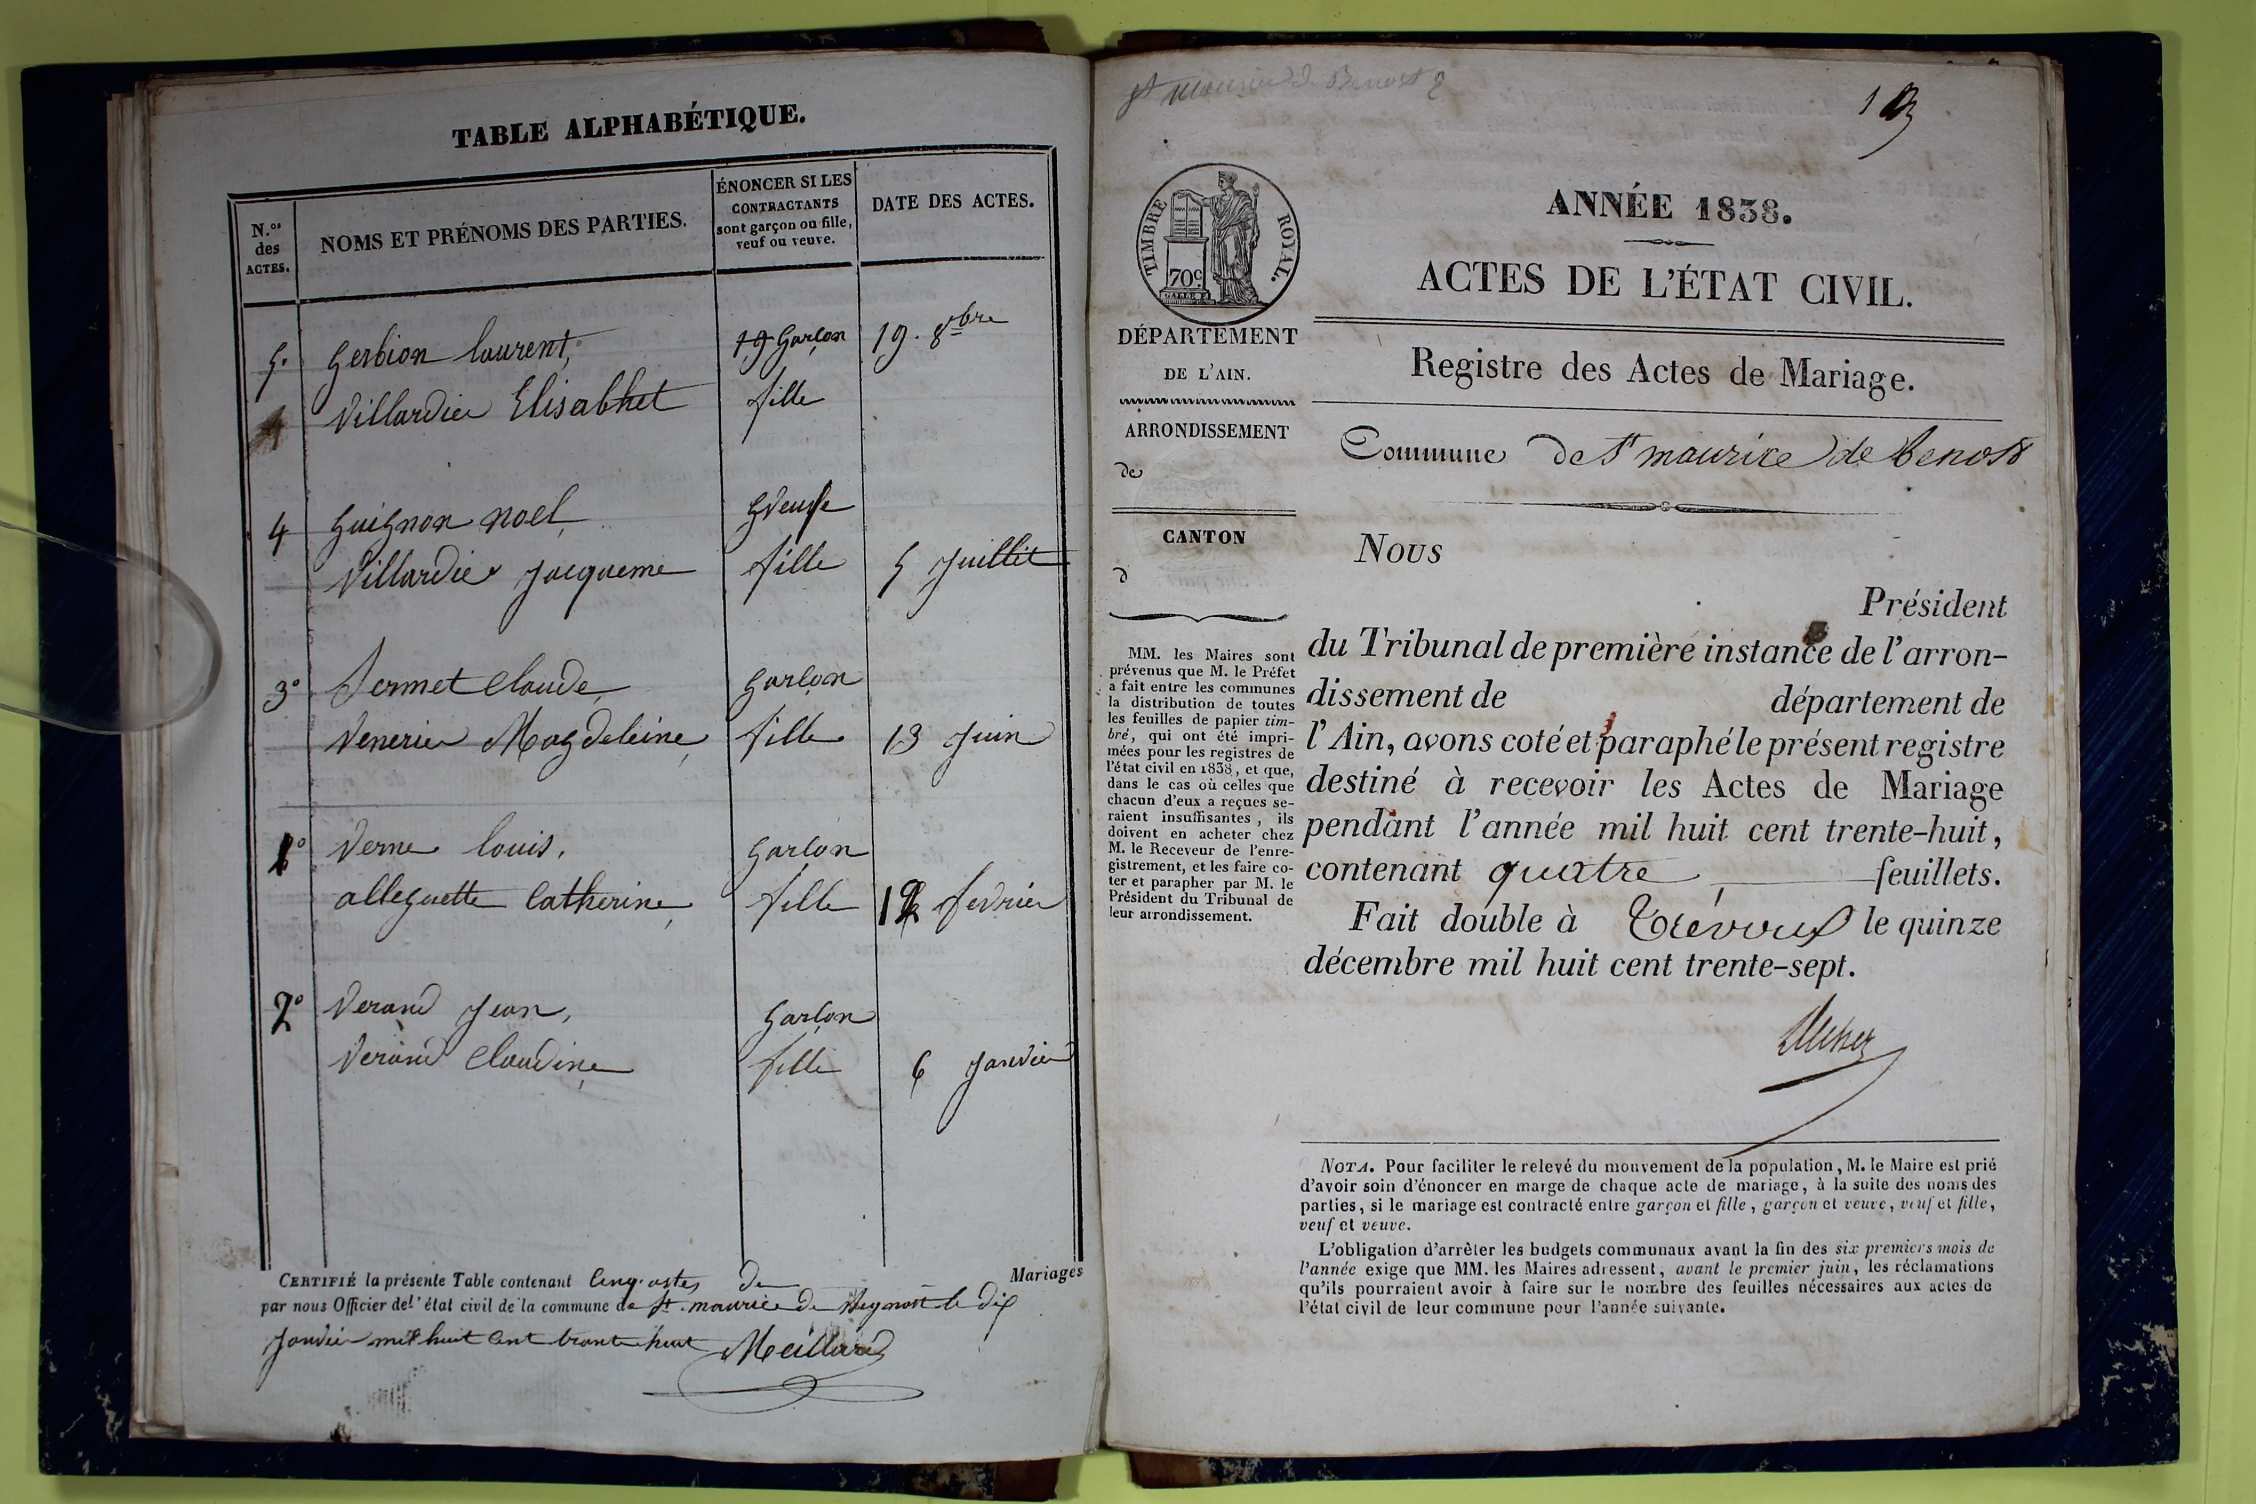 TABLE ALPHABÉTIQUE.
N.os
des
ACTES.
NOMS ET PRÉNOMS DES PARTIES.
ÉNONCER SI LES
CONTRACTANTS
sont garçon ou fille,
veuf ou veuve.
DATE DES ACTES.
5. Gerbion laurent, garçon 19. 8bre
Villardier Elisabhet fille
4 Guignon noel,
Villardier Jacqueme fille 5 Juillet
3o fermet Claude, garçon
Venerier Magdeleine, fille 13 Juin
1o Verne louis, garçon
alleguette Catherine, fille 12 fevrier
2o Verand Jean, garçon
Verand Claudine, fille 6 Janvier
CERTIFIÉ la présente Table contenant Cinq actes de Mariages
par nous Officier del' état civil de la commune de St. maurice de Beynost le dix
Janvier mil huit cent trente huit Meillard
St Maurice de Benost
ANNÉE 1838.
ACTES DE L'ÉTAT CIVIL.
TIMBRE ROYAL.
70c
DÉPARTEMENT
DE L'AIN.
ARRONDISSEMENT
de
CANTON
d
MM. les Maires sont
prévenus que M. le Préfet
a fait entre les communes
la distribution de toutes
les feuilles de papier tim-
bré, qui ont été impri-
mées pour les registres de
l'état civil en 1838, et que,
dans le cas où celles que
chacun d'eux a reçues se-
raient insuffisantes, ils
doivent en acheter chez
M. le Receveur de l'enre-
gistrement, et les faire co-
ter et parapher par M. le
Président du Tribunal de
leur arrondissement.
Registre des Actes de Mariage.
Commune de St maurice de benost
Nous
Président
du Tribunal de première instance de l'arron-
dissement de département de
l'Ain, avons coté et paraphé le présent registre
destiné à recevoir les Actes de Mariage
pendant l'année mil huit cent trente-huit,
contenant quatre feuillets.
Fait double à Trévoux le quinze
décembre mil huit cent trente-sept.
NOTA. Pour faciliter le relevé du mouvement de la population, M. le Maire est prié
d'avoir soin d'énoncer en marge de chaque acte de mariage, à la suite des noms des
parties, si le mariage est contracté entre garçon et fille, garçon et veuve, veuf et fille,
veuf et veuve.
L'obligation d'arrêter les budgets communaux avant la fin des six premiers mois de
l'année exige que MM. les Maires adressent, avant le premier juin, les réclamations
qu'ils pourraient avoir à faire sur le nombre des feuilles nécessaires aux actes de
l'état civil de leur commune pour l'année suivante.